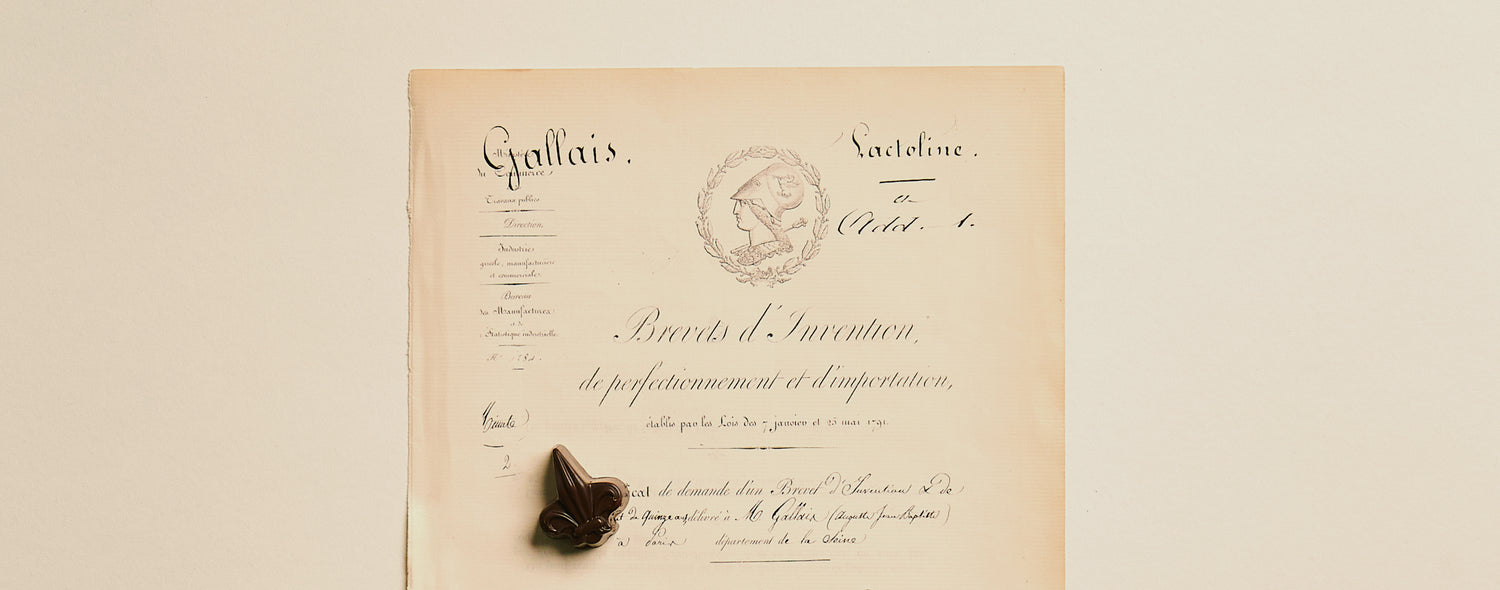 Gallais.
du Commerce,
Travaux publics
Direction.
Industrie
agricole, manufacturière
et commerciale.
Bureau
des Manufactures
et de
Statistique industrielle.
Minute
2
Lactoline.
et
Add. 1.
Brevets d'Invention,
de perfectionnement et d'importation,
établis par les Lois des 7 janvier et 25 mai 1791.
de demande d'un Brevet d'Invention & de
de Quinze ans délivré à M Gallais (Auguste Jean Baptiste)
à Paris département de la Seine